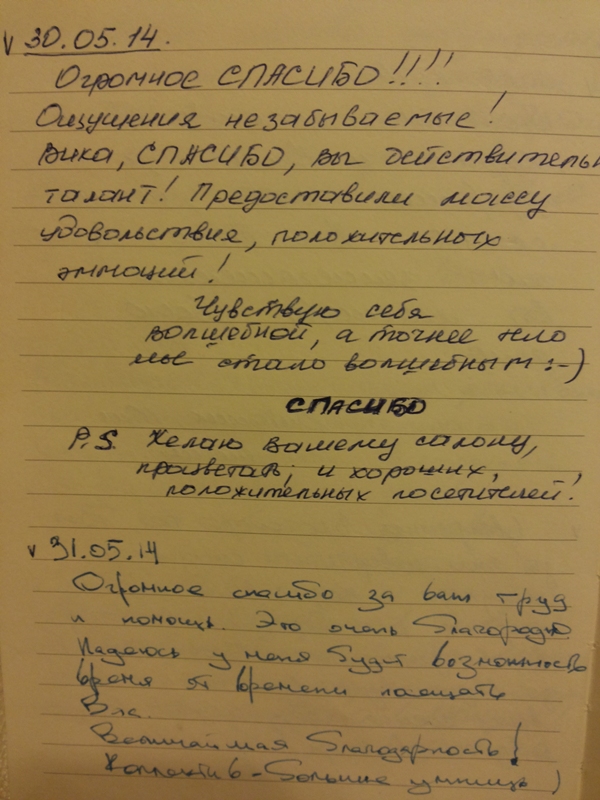 v 30.05.14.
Огромное СПАСИБО!!!!
Ощущения незабываемые!
Вика, СПАСИБО, вы действительн
талант! Предоставили массу
удовольствия, положительных
эммоций!
Чувствую себя
волшебной, а точнее тело
мое стало волшебным :-)
СПАСИБО
P.S. Желаю вашему салону,
процветать, и хороших,
положительных посетителей!
v 31.05.14
Огромное спасибо за ваш труд
и помощь. Это очень благородно.
Надеюсь у меня будет возможность
время от времени посещать
Вас.
Величайшая благодарность!
Коллектив - большие умницы)